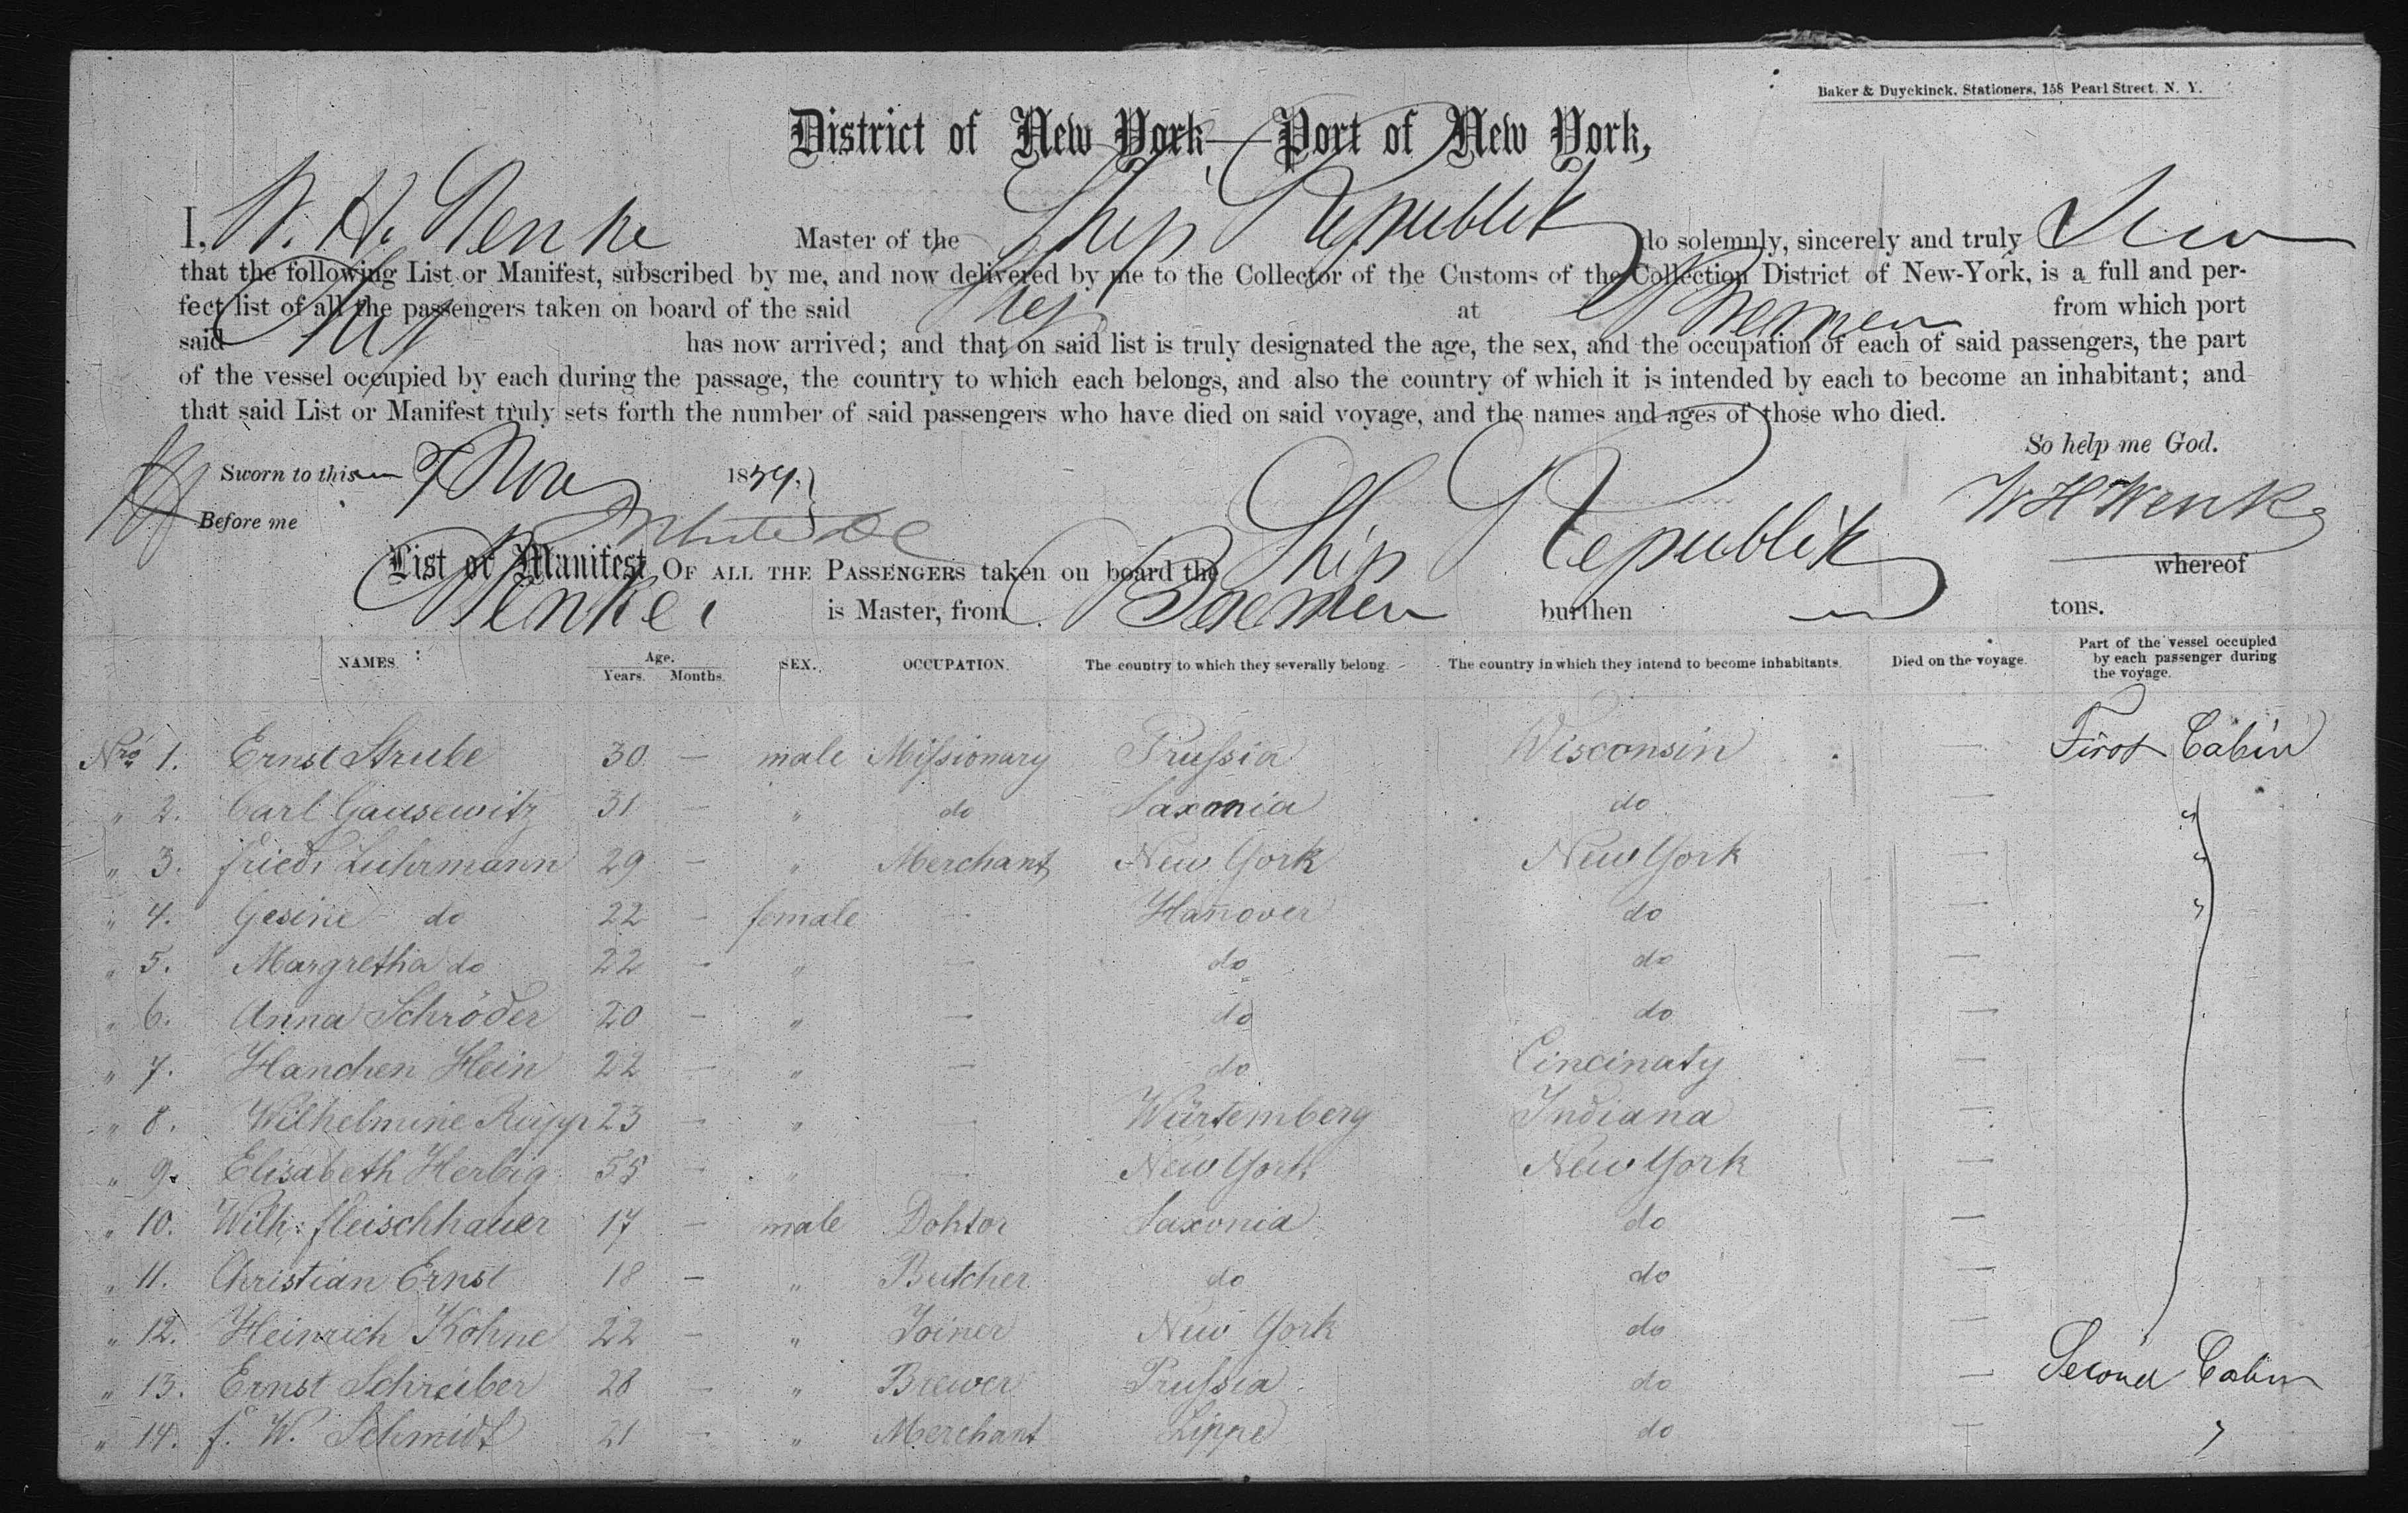 Baker & Duyckinck, Stationers, 158 Pearl Street, N. Y.
District of New York—Port of New York,
I, W. H. Wenke Master of the Ship Republik do solemnly, sincerely and truly
that the following List or Manifest, subscribed by me, and now delivered by me to the Collector of the Customs of the Collection District of New-York, is a full and per-
fect list of all the passengers taken on board of the said Ship at Bremen from which port
said Ship has now arrived; and that on said list is truly designated the age, the sex, and the occupation of each of said passengers, the part
of the vessel occupied by each during the passage, the country to which each belongs, and also the country of which it is intended by each to become an inhabitant; and
that said List or Manifest truly sets forth the number of said passengers who have died on said voyage, and the names and ages of those who died.
So help me God.
Sworn to this 7 Nov 1859. W H Wenke
Before me
List or Manifest OF ALL THE PASSENGERS taken on board the Ship Republik whereof
Wenke is Master, from Bremen burthen — tons.
NAMES. Age. Years. Months. SEX. OCCUPATION. The country to which they severally belong. The country in which they intend to become inhabitants. Died on the voyage. Part of the vessel occupied by each passenger during the voyage.
Nro 1. Ernst Strube 30 — male Missionary Prussia Wisconsin — First Cabin
" 2. Carl Gausewitz 31 — " do Saxonia do — "
" 3. Friedr Luhrmann 29 — " Merchant New York New York — "
" 4. Gesine do 22 — female — Hannover do — "
" 5. Margretha do 22 — " — do do —
" 6. Anna Schröder 20 — " — do do —
" 7. Hanchen Hein 22 — " — do Cincinaty —
" 8. Wilhelmine Rupp 23 — " — Würtemberg Indiana —
" 9. Elisabeth Herbig 55 — " — New York New York —
" 10. Wilh: Fleischhauer 17 — male Doktor Saxonia do —
" 11. Christian Ernst 18 — " Butcher do do —
" 12. Heinrich Köhne 22 — " Joiner New York do —
" 13. Ernst Schreiber 28 — " Brewer Prussia do — Second Cabin
" 14. F. W. Schmidt 21 — " Merchant Lippe do — "